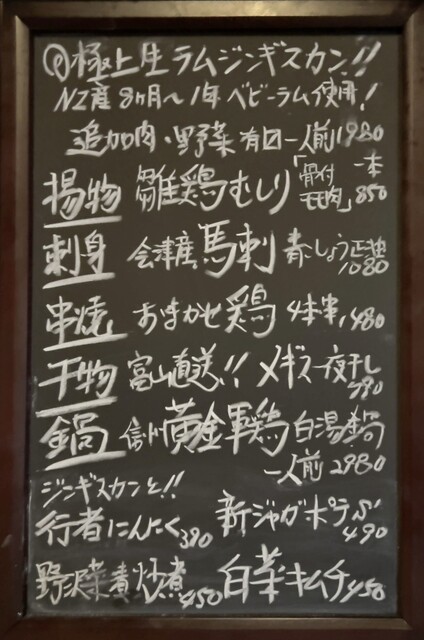 極上生ラムジンギスカン!!
NZ産8ヶ月〜1年ベビーラム使用!
追加肉・野菜有 一人前1980
揚物 雛鶏むしり「骨付モモ肉」一本850
刺身 会津産馬刺 1080
串焼 おまかせ鶏4本串1,480
干物 富山直送!! メギス一夜干し
鍋 信州黄金軍鶏白湯鍋
一人前2980
ジンギスカンと!!
行者にんにく390 新ジャガポテサ490
野沢菜煮 450 白菜キムチ450